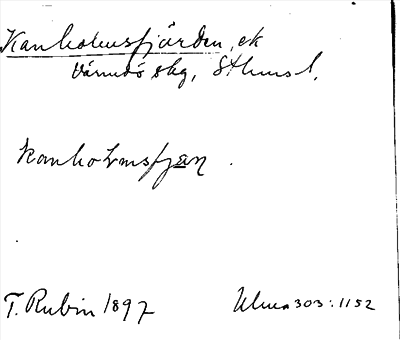 Kanholmsfjärden, ek
Värmdö skg, Sthms l.
kanholmsfjan.
T. Rubin 1897 Ulma 303:1152